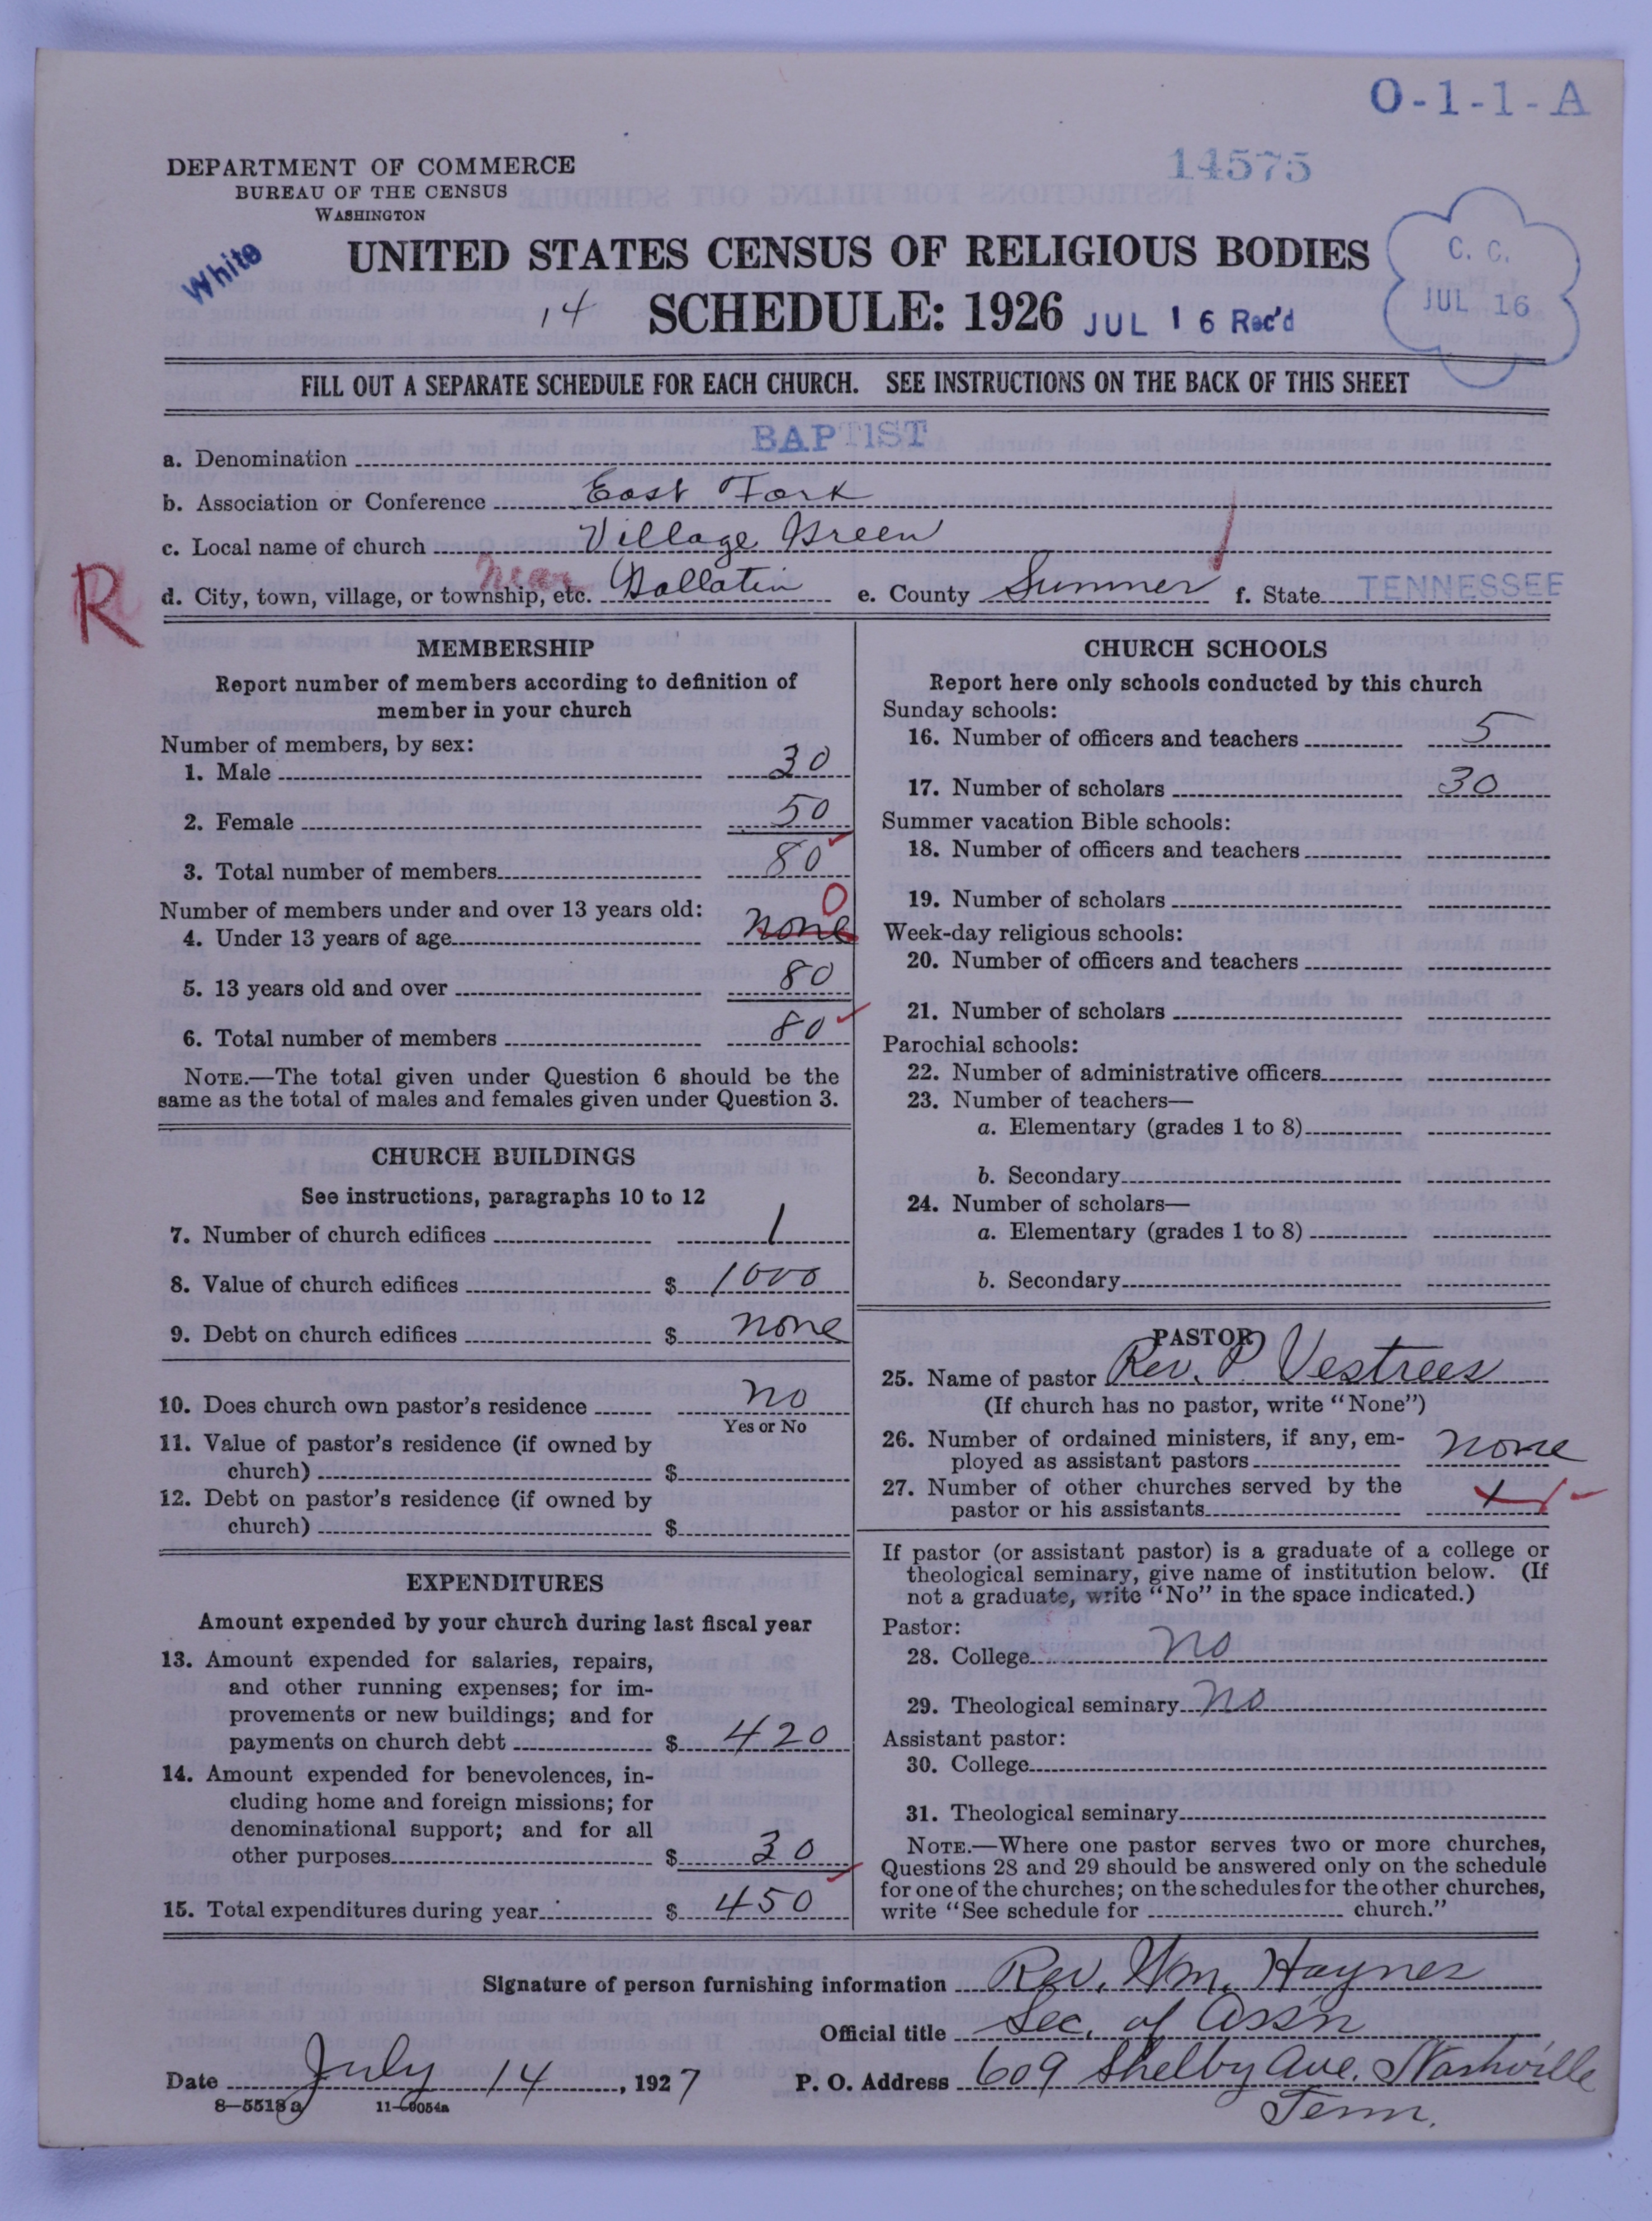 O-1-1-A
DEPARTMENT OF COMMERCE
BUREAU OF THE CENSUS
WASHINGTON
14575
White
UNITED STATES CENSUS OF RELIGIOUS BODIES
C. C.
JUL 16
14 SCHEDULE: 1926 JUL 16 Rec'd
FILL OUT A SEPARATE SCHEDULE FOR EACH CHURCH. SEE INSTRUCTIONS ON THE BACK OF THIS SHEET
a. Denomination BAPTIST
b. Association or Conference East Fork
c. Local name of church Village Green
R
d. City, town, village, or township, etc. near Gallatin e. County Sumner f. State TENNESSEE
MEMBERSHIP
Report number of members according to definition of
member in your church
Number of members, by sex:
1. Male 30
2. Female 50
3. Total number of members 80
Number of members under and over 13 years old: 0
4. Under 13 years of age none
5. 13 years old and over 80
6. Total number of members 80
NOTE.—The total given under Question 6 should be the
same as the total of males and females given under Question 3.
CHURCH BUILDINGS
See instructions, paragraphs 10 to 12
7. Number of church edifices 1
8. Value of church edifices $ 1000
9. Debt on church edifices $ none
10. Does church own pastor's residence no
Yes or No
11. Value of pastor's residence (if owned by
church) $
12. Debt on pastor's residence (if owned by
church) $
EXPENDITURES
Amount expended by your church during last fiscal year
13. Amount expended for salaries, repairs,
and other running expenses; for im-
provements or new buildings; and for
payments on church debt $ 420
14. Amount expended for benevolences, in-
cluding home and foreign missions; for
denominational support; and for all
other purposes $ 30
15. Total expenditures during year $ 450
CHURCH SCHOOLS
Report here only schools conducted by this church
Sunday schools:
16. Number of officers and teachers 5
17. Number of scholars 30
Summer vacation Bible schools:
18. Number of officers and teachers
19. Number of scholars
Week-day religious schools:
20. Number of officers and teachers
21. Number of scholars
Parochial schools:
22. Number of administrative officers
23. Number of teachers—
a. Elementary (grades 1 to 8)
b. Secondary
24. Number of scholars—
a. Elementary (grades 1 to 8)
b. Secondary
PASTOR
25. Name of pastor Rev. P. Vestrees
(If church has no pastor, write "None")
26. Number of ordained ministers, if any, em-
ployed as assistant pastors none
27. Number of other churches served by the
pastor or his assistants
If pastor (or assistant pastor) is a graduate of a college or
theological seminary, give name of institution below. (If
not a graduate, write "No" in the space indicated.)
Pastor:
28. College no
29. Theological seminary no
Assistant pastor:
30. College
31. Theological seminary
NOTE.—Where one pastor serves two or more churches,
Questions 28 and 29 should be answered only on the schedule
for one of the churches; on the schedules for the other churches,
write "See schedule for church."
Signature of person furnishing information Rev. Wm. Haynes
Official title Sec. of Ass'n
Date July 14, 1927 P. O. Address 609 Shelby Ave. Nashville
Tenn.
8—5518a 11—9054a